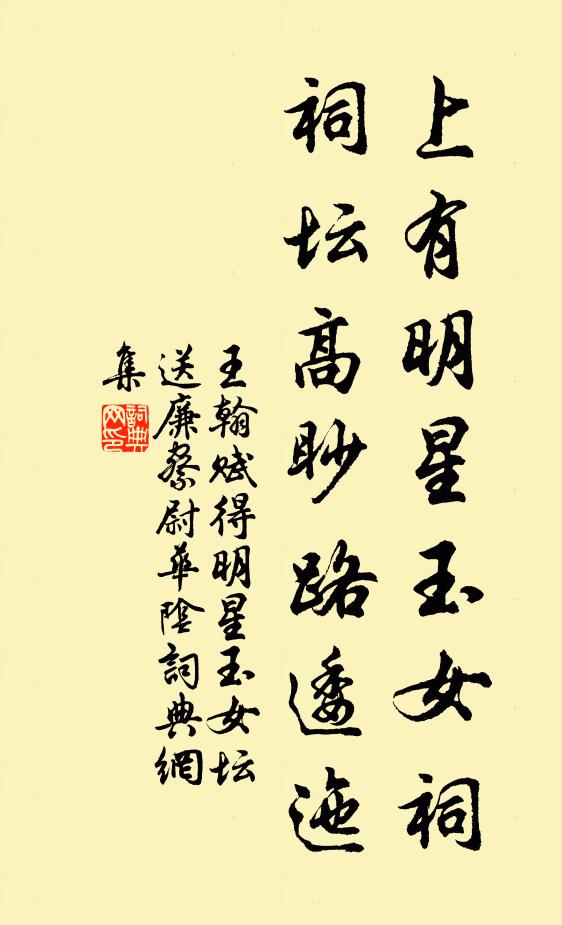 上有明星玉女祠
祠坛高眇路逶迤
王翰赋得明星玉女坛
送廉察尉华陰詞典網
集
詞典
网印